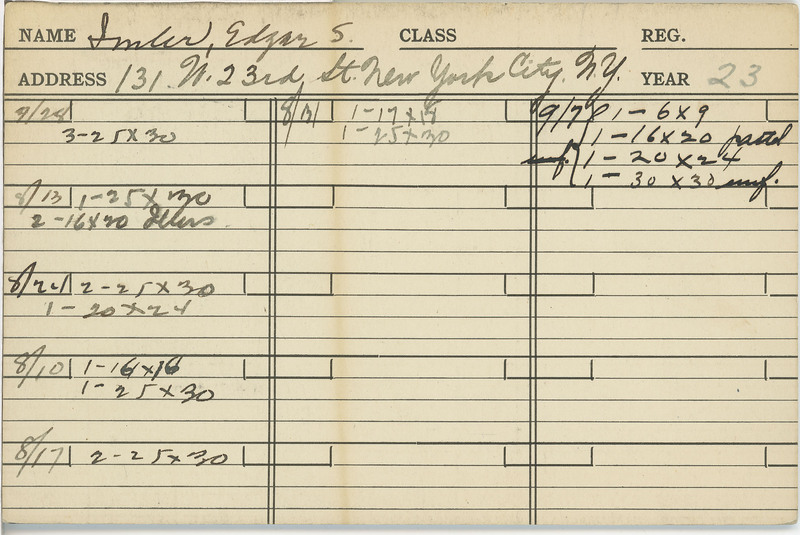 NAME Imler, Edgar S. CLASS REG.
ADDRESS 131 W. 23rd St. New York City, N.Y. YEAR 23
7/28
3-25x30
8/13 1-25x30
2-16x20
8/24 2-25x30
1-20x24
8/10 1-16x16
1-25x30
8/17 2-25x30
8/31 1-17x19
1-25x30
9/7 1-6x9
1-16x20 pastel
unf. 1-20x24
1-30x30 unf.